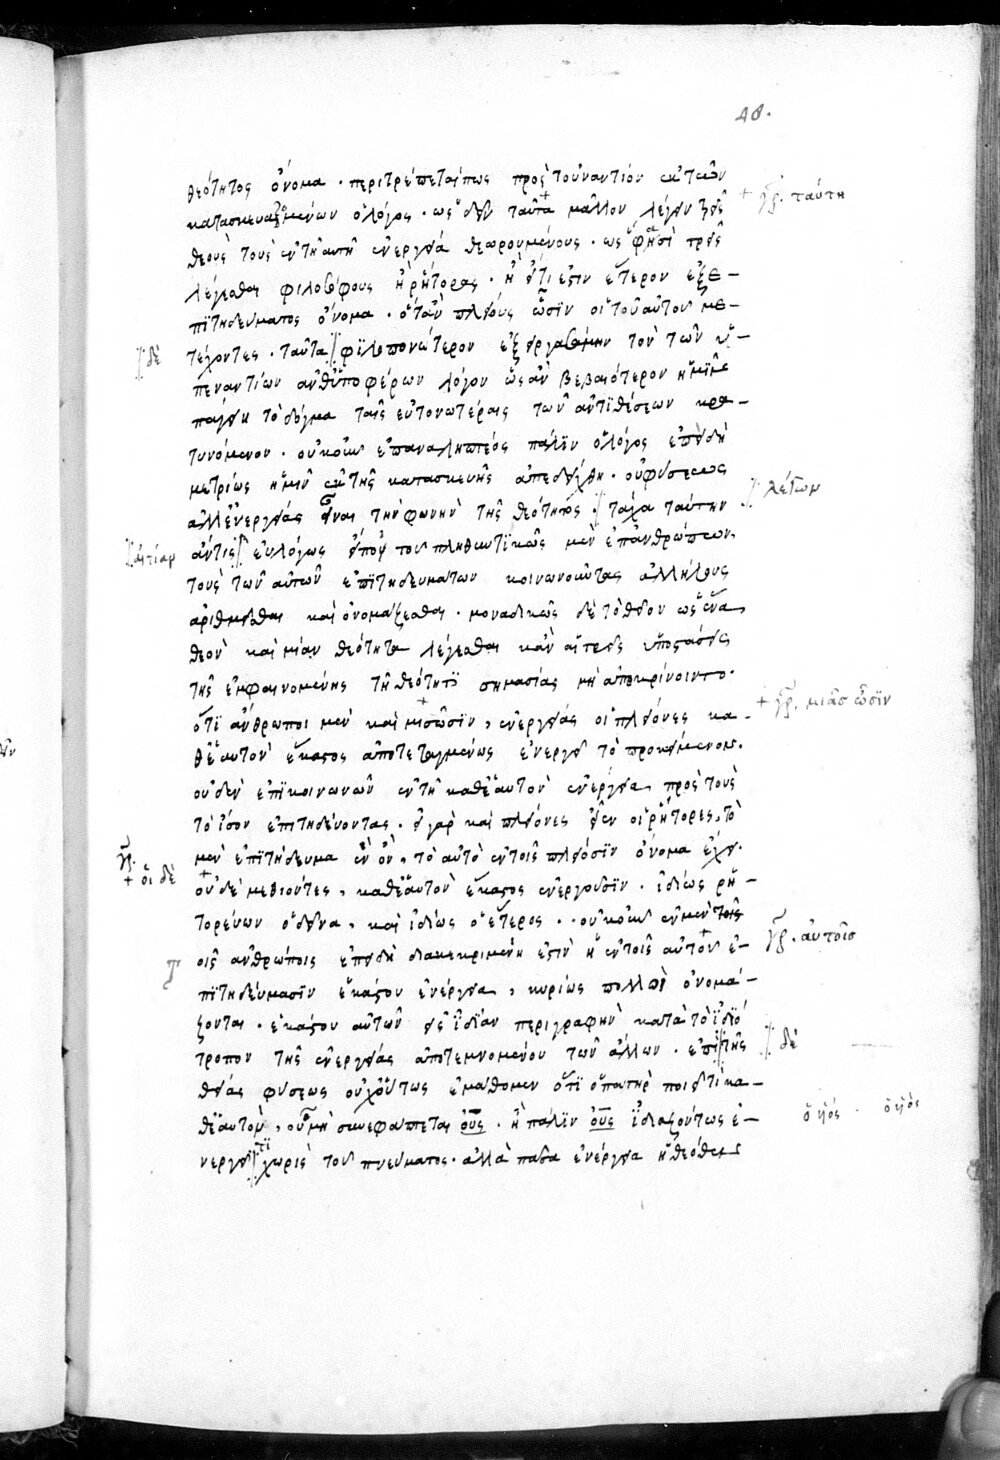 48.
θεότητος ὄνομα · περιτρέπεται πως πρὸς τοὐναντίον ἐκ τῶν
κατασκευαζομένων ὁ λόγος · ὡς δεῖν ταῦτα μᾶλλον λέγειν τρεῖς
θεοὺς τοὺς ἐν τῇ αὐτῇ ἐνεργείᾳ θεωρουμένους · ὡς φησὶ τρεῖς
λέγεσθαι φιλοσόφους ἢ ῥήτορας · ἢ ὅτι ἐστιν ἕτερον ἐξ ἐ-
πιτηδεύματος ὄνομα · ὅταν πλείους ὦσιν οἱ τοῦ αὐτοῦ με-
τέχοντες · ταῦτα φιλοπονώτερον ἐξειργασάμην τὸν τῶν ὑ-
πεναντίων ἀνθυποφέρων λόγον ὡς ἂν βεβαιότερον ἡμῖν
παγείη τὸ δόγμα ταῖς εὐτονωτέραις τῶν ἀντιθέσεων κρα-
τυνόμενον · οὐκοῦν ἐπαναληπτέος πάλιν ὁ λόγος ἐπειδὴ
μετρίως ἡμῖν ἐκ τῆς κατασκευῆς ἀπεδείχθη · οὐ φύσεως
ἀλλ' ἐνεργείας εἶναι τὴν φωνὴν τῆς θεότητος · τάχα ταύτην
ἄν τις εὐλόγως εἴποι τοῦ πληθυντικῶς μὲν ἐπ' ἀνθρώπων
τοὺς τῶν αὐτῶν ἐπιτηδευμάτων κοινωνοῦντας ἀλλήλοις
ἀριθμεῖσθαι καὶ ὀνομάζεσθαι · μοναδικῶς δὲ τὸ θεῖον ὡς ἕνα
θεὸν καὶ μίαν θεότητα λέγεσθαι κἂν αἱ τρεῖς ὑποστάσεις
τῆς ἐμφαινομένης τῇ θεότητι σημασίας μὴ ἀποκρίνοιντο ·
ὅτι ἄνθρωποι μὲν καὶ μιᾶς ὦσιν, ἐνεργείας οἱ πλείονες κα-
θ' ἑαυτὸν ἕκαστος ἀποτεταγμένως ἐνεργεῖ τὸ προκείμενον.
οὐδὲν ἐπικοινωνῶν ἐν τῇ καθ' ἑαυτὸν ἐνεργείᾳ πρὸς τοὺς
τὸ ἴσον ἐπιτηδεύοντας · εἰ γὰρ καὶ πλείονες εἶεν οἱ ῥήτορες, τὸ
μὲν ἐπιτήδευμα ἓν ὂν, τὸ αὐτὸ ἐν τοῖς πλείοσιν ὄνομα ἔχει.
οὐδὲ μετιόντες, καθ' ἑαυτὸν ἕκαστος ἐνεργοῦσιν · ἰδίως ῥη-
τορεύων ὁ δεῖνα, καὶ ἰδίως ὁ ἕτερος · οὐκοῦν ἐν μὲν τοῖς
οις ἀνθρώποις ἐπειδὴ διακεκριμένη ἐστὶν ἡ ἐν τοῖς αὐτοῦ ἐ-
πιτηδεύμασιν ἑκάστου ἐνέργεια, κυρίως πολλοὶ ὀνομά-
ζονται · ἑκάστου αὐτῶν εἰς ἰδίαν περιγραφὴν κατὰ τὸ ἰδιό
τροπον τῆς ἐνεργείας ἀποτεμνομένου τῶν ἄλλων · ἐπὶ τῆς
θείας φύσεως οὐχ οὕτως ἐμάθομεν ὅτι ὁ πατὴρ ποιεῖ τι κα-
θ' ἑαυτὸν, οὗ μὴ συνεφάπτεται ὁ υς · ἢ πάλιν ὁ υς ἰδιαζόντως ἐ-
νεργεῖ τι χωρὶς τοῦ πνεύματος · ἀλλὰ πᾶσα ἐνέργεια ἡ θεόθεν
+ γρ. ταύτη
δὲ
λείπον
αἰτίαν
+ γρ. μιᾶς ὦσιν
γρ.
+ οἱ δὲ
γρ. αὐτοῖς
δὲ
ὁ υἱός · ὁ υἱὸς